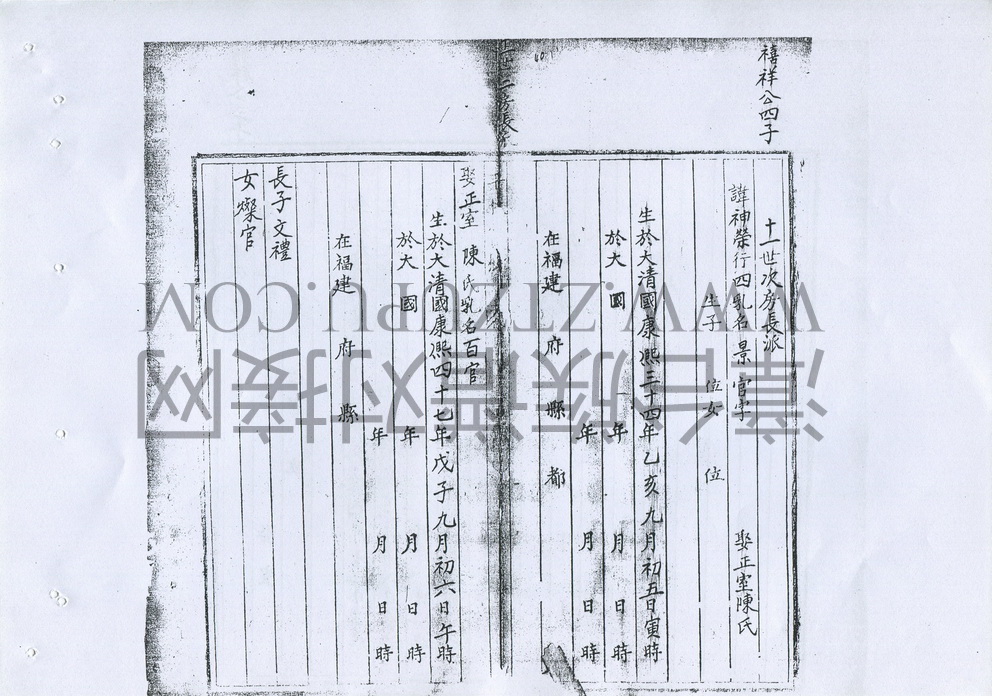 禧祥公四子
十一世次房長派
諱神榮行四乳名景官字 娶正室陳氏
生子 位女 位
生於大清國康熙三十四年乙亥九月初五日寅時
於大 國 年 月 日 時
年 月 日 時
在福建 府 縣 都
娶正室 陳氏乳名百官
生於大清國康熙四十七年戊子九月初六日午時
於大 國 年 月 日 時
年 月 日 時
在福建 府 縣
長子文禮
女燦官
WWW.ZTZUPU.COM
漳台族谱对接网